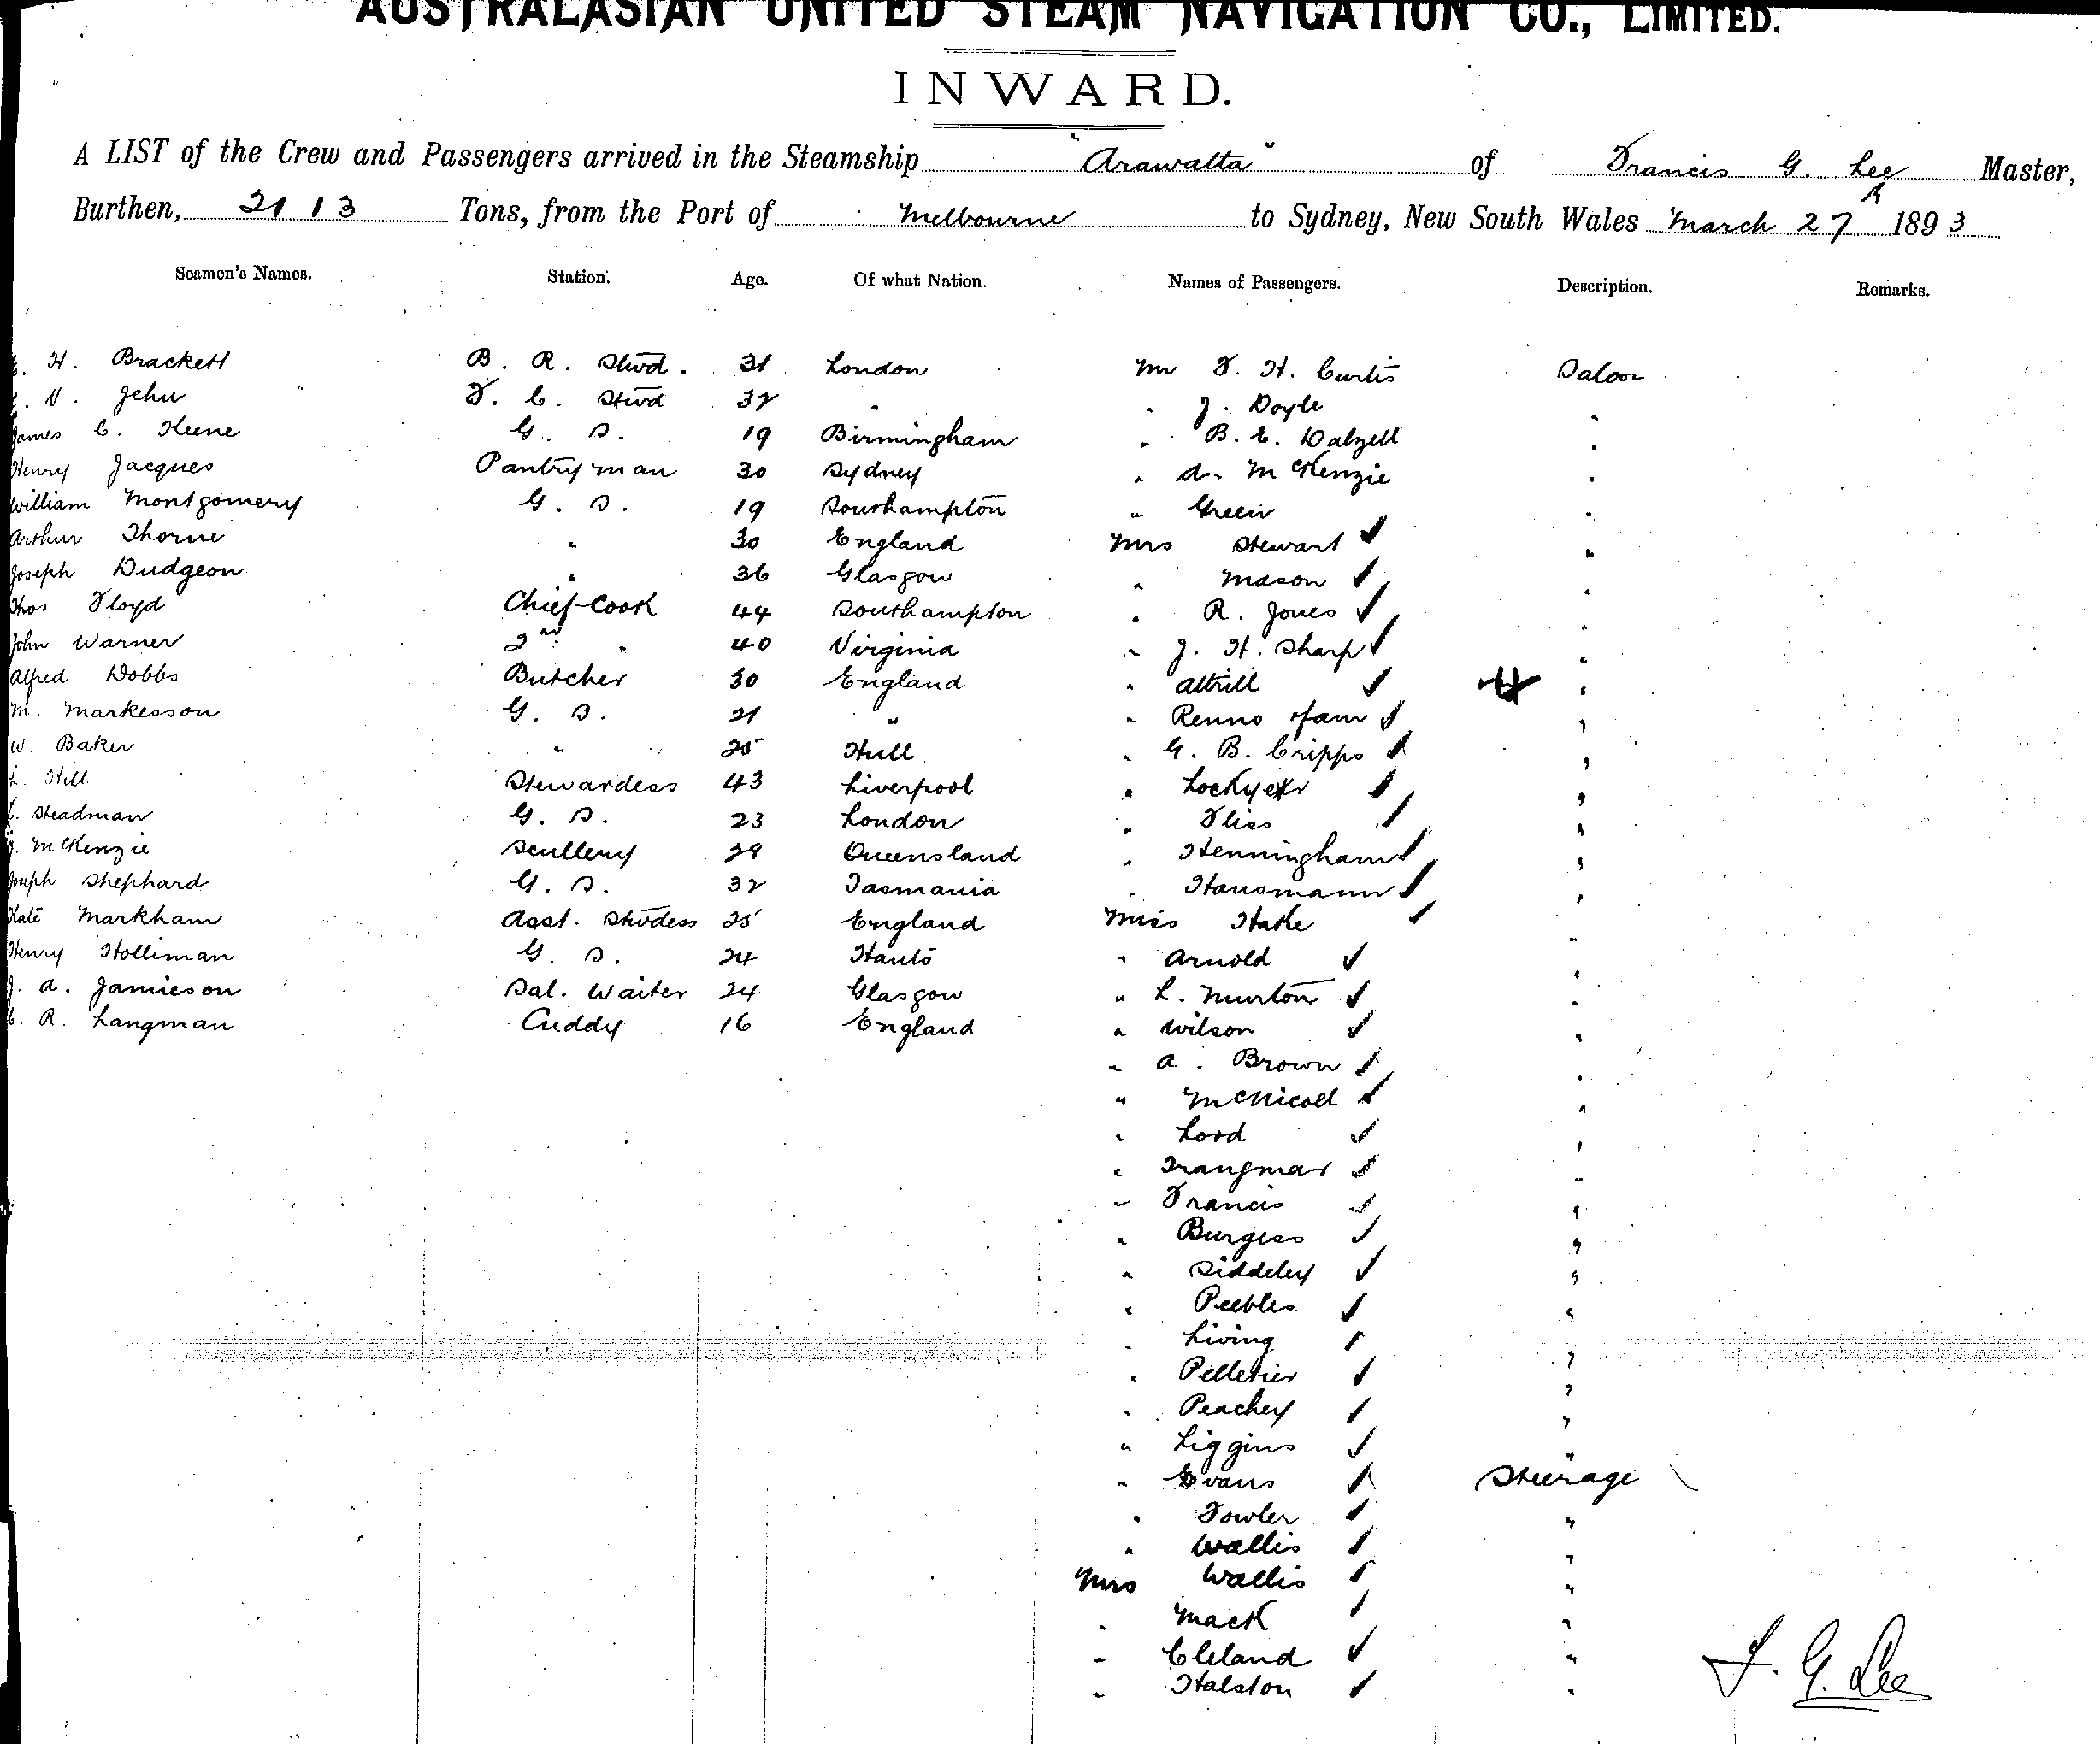 AUSTRALASIAN UNITED STEAM NAVIGATION CO., LIMITED.
INWARD.
A LIST of the Crew and Passengers arrived in the Steamship "Arawatta" of Francis G. Lee Master,
Burthen, 2113 Tons, from the Port of Melbourne to Sydney, New South Wales March 27th 1893
Seamen's Names. Station. Age. Of what Nation. Names of Passengers. Description. Remarks.
H. Brackett B. R. Stwd. 31 London Mr F. H. Curtis Saloon
Jehu F. C. Stwd 32 " " J. Doyle "
James C. Keene G. S. 19 Birmingham " B. E. Dalzell "
Henry Jacques Pantryman 30 Sydney " A. McKenzie "
William Montgomery G. S. 19 Southampton " Green "
Arthur Thorne " 30 England Mrs Stewart ✓ "
Joseph Dudgeon " 36 Glasgow " Mason ✓ "
Thos Floyd Chief Cook 44 Southampton " R. Jones ✓ "
John Warner 2nd " 40 Virginia " J. H. Sharp ✓ "
Alfred Dobbs Butcher 30 England " Attrill ✓ "
M. Markesson G. S. 21 " " Renno ✓ "
W. Baker " 25 Hull " G. B. Cripps ✓ "
Hill Stewardess 43 Liverpool " Lockyer ✓ "
Steadman G. S. 23 London " ✓ "
McKenzie Scullery 29 Queensland " Henningham ✓ "
Joseph Shephard G. S. 32 Tasmania " Hausmann ✓ "
Kate Markham Asst. Stwdess 25 England Miss Hake ✓ "
Henry Holliman G. S. 24 Hants " Arnold ✓ "
J. A. Jamieson Sal. Waiter 24 Glasgow " L. Murton ✓ "
C. R. Langman Cuddy 16 England " Wilson ✓ "
" A. Brown ✓ "
" McNicoll ✓ "
" Lord ✓ "
" Trangmar ✓ "
" Francis ✓ "
" Burgess ✓ "
" Siddeley ✓ "
" Peebles ✓ "
" Living ✓ "
" Pelletier ✓ "
" Peachey ✓ "
" Liggins ✓ "
" Evans ✓ Steerage
" Fowler ✓ "
" Wallis ✓ "
Mrs Wallis ✓ "
" Mack ✓ "
" Cleland ✓ "
" Halston ✓ "
F. G. Lee